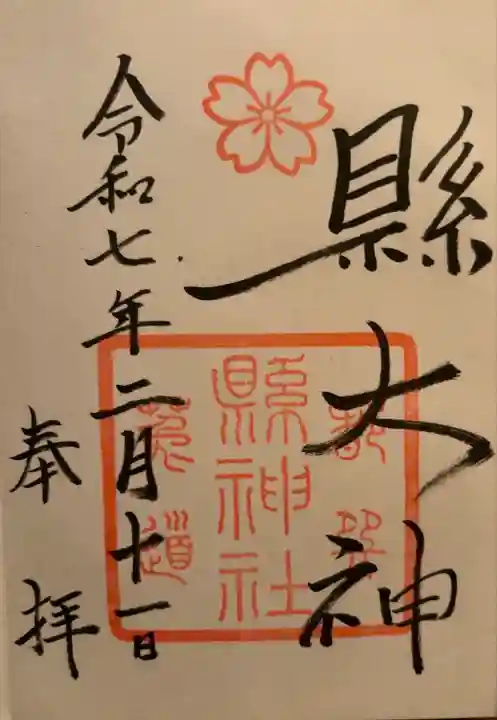 縣大神
縣神社
令和七年二月十一日
奉拝